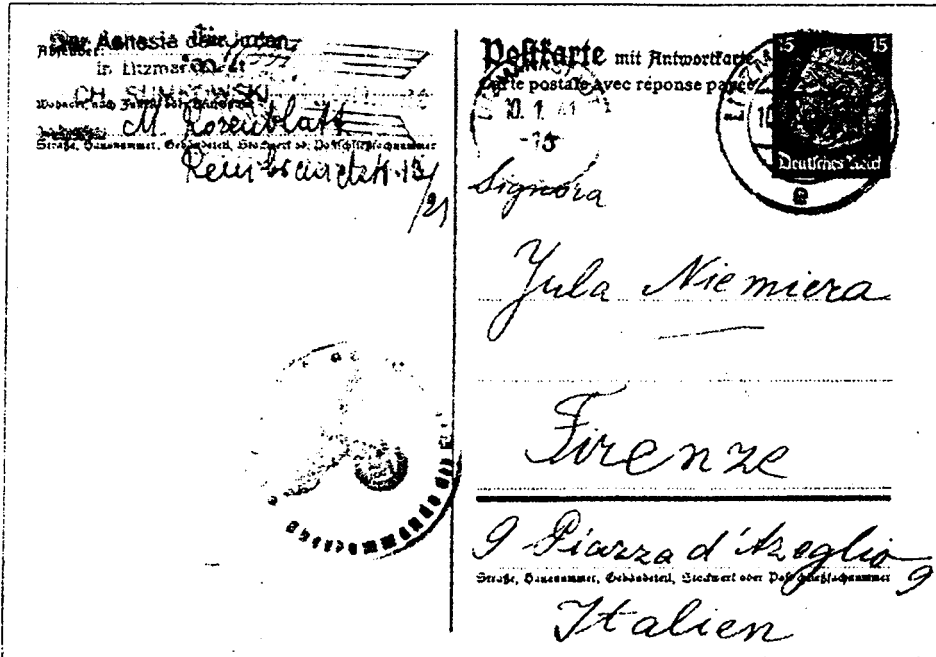 Der Aelteste der Juden
in Litzmannstadt
M. Rosenblatt
Straße, Hausnummer, Gebäudeteil, Stockwerk od. Postschließfachnummer
Rembrandtstr. 13/
/21
Postkarte mit Antwortkarte
Carte postale avec réponse payée
10.1.41
15 15
Deutsches Reich
e
Signora
Jula Niemiera
Firenze
9 Piazza d'Azeglio 9
Straße, Hausnummer, Gebäudeteil, Stockwerk oder Postschließfachnummer
Italien